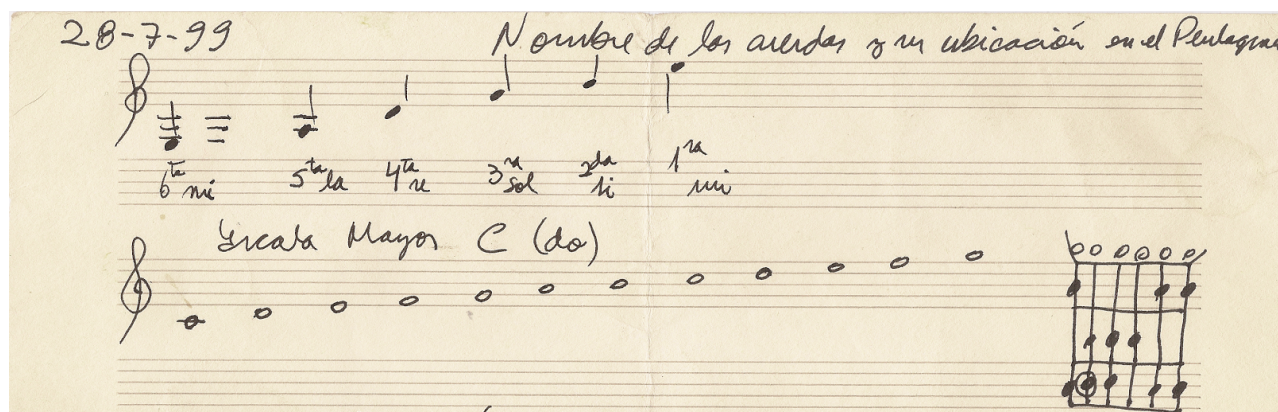 28-7-99
Nombre de las cuerdas y su ubicación en el Pentagra
6ta mi 5ta la 4ta re 3ra sol 2da si 1ra mi
Escala Mayor C (do)